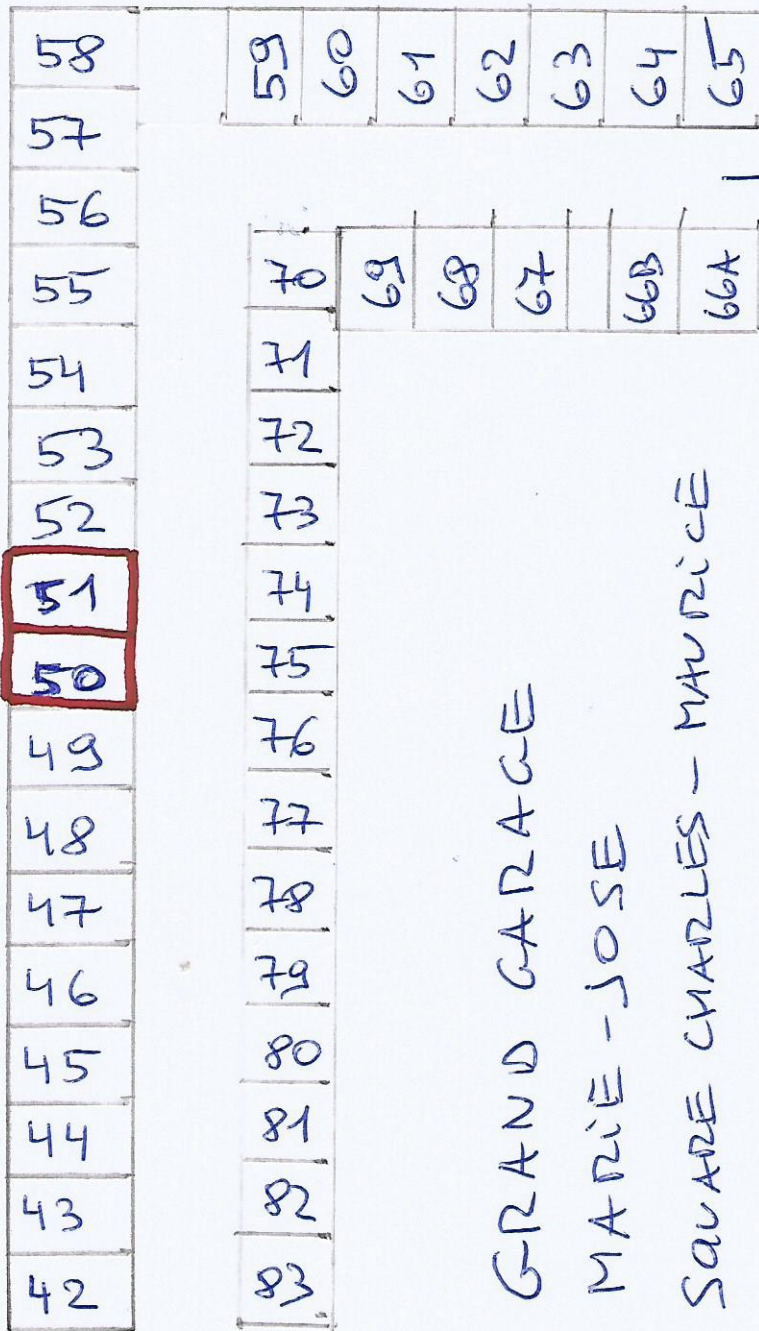 58
57
56
55
54
53
52
51
50
49
48
47
46
45
44
43
42
59
60
61
62
63
64
65
70
71
72
73
74
75
76
77
78
79
80
81
82
83
69
68
67
66B
66A
GRAND GARAGE
MARIE-JOSE
SQUARE CHARLES-MAURICE